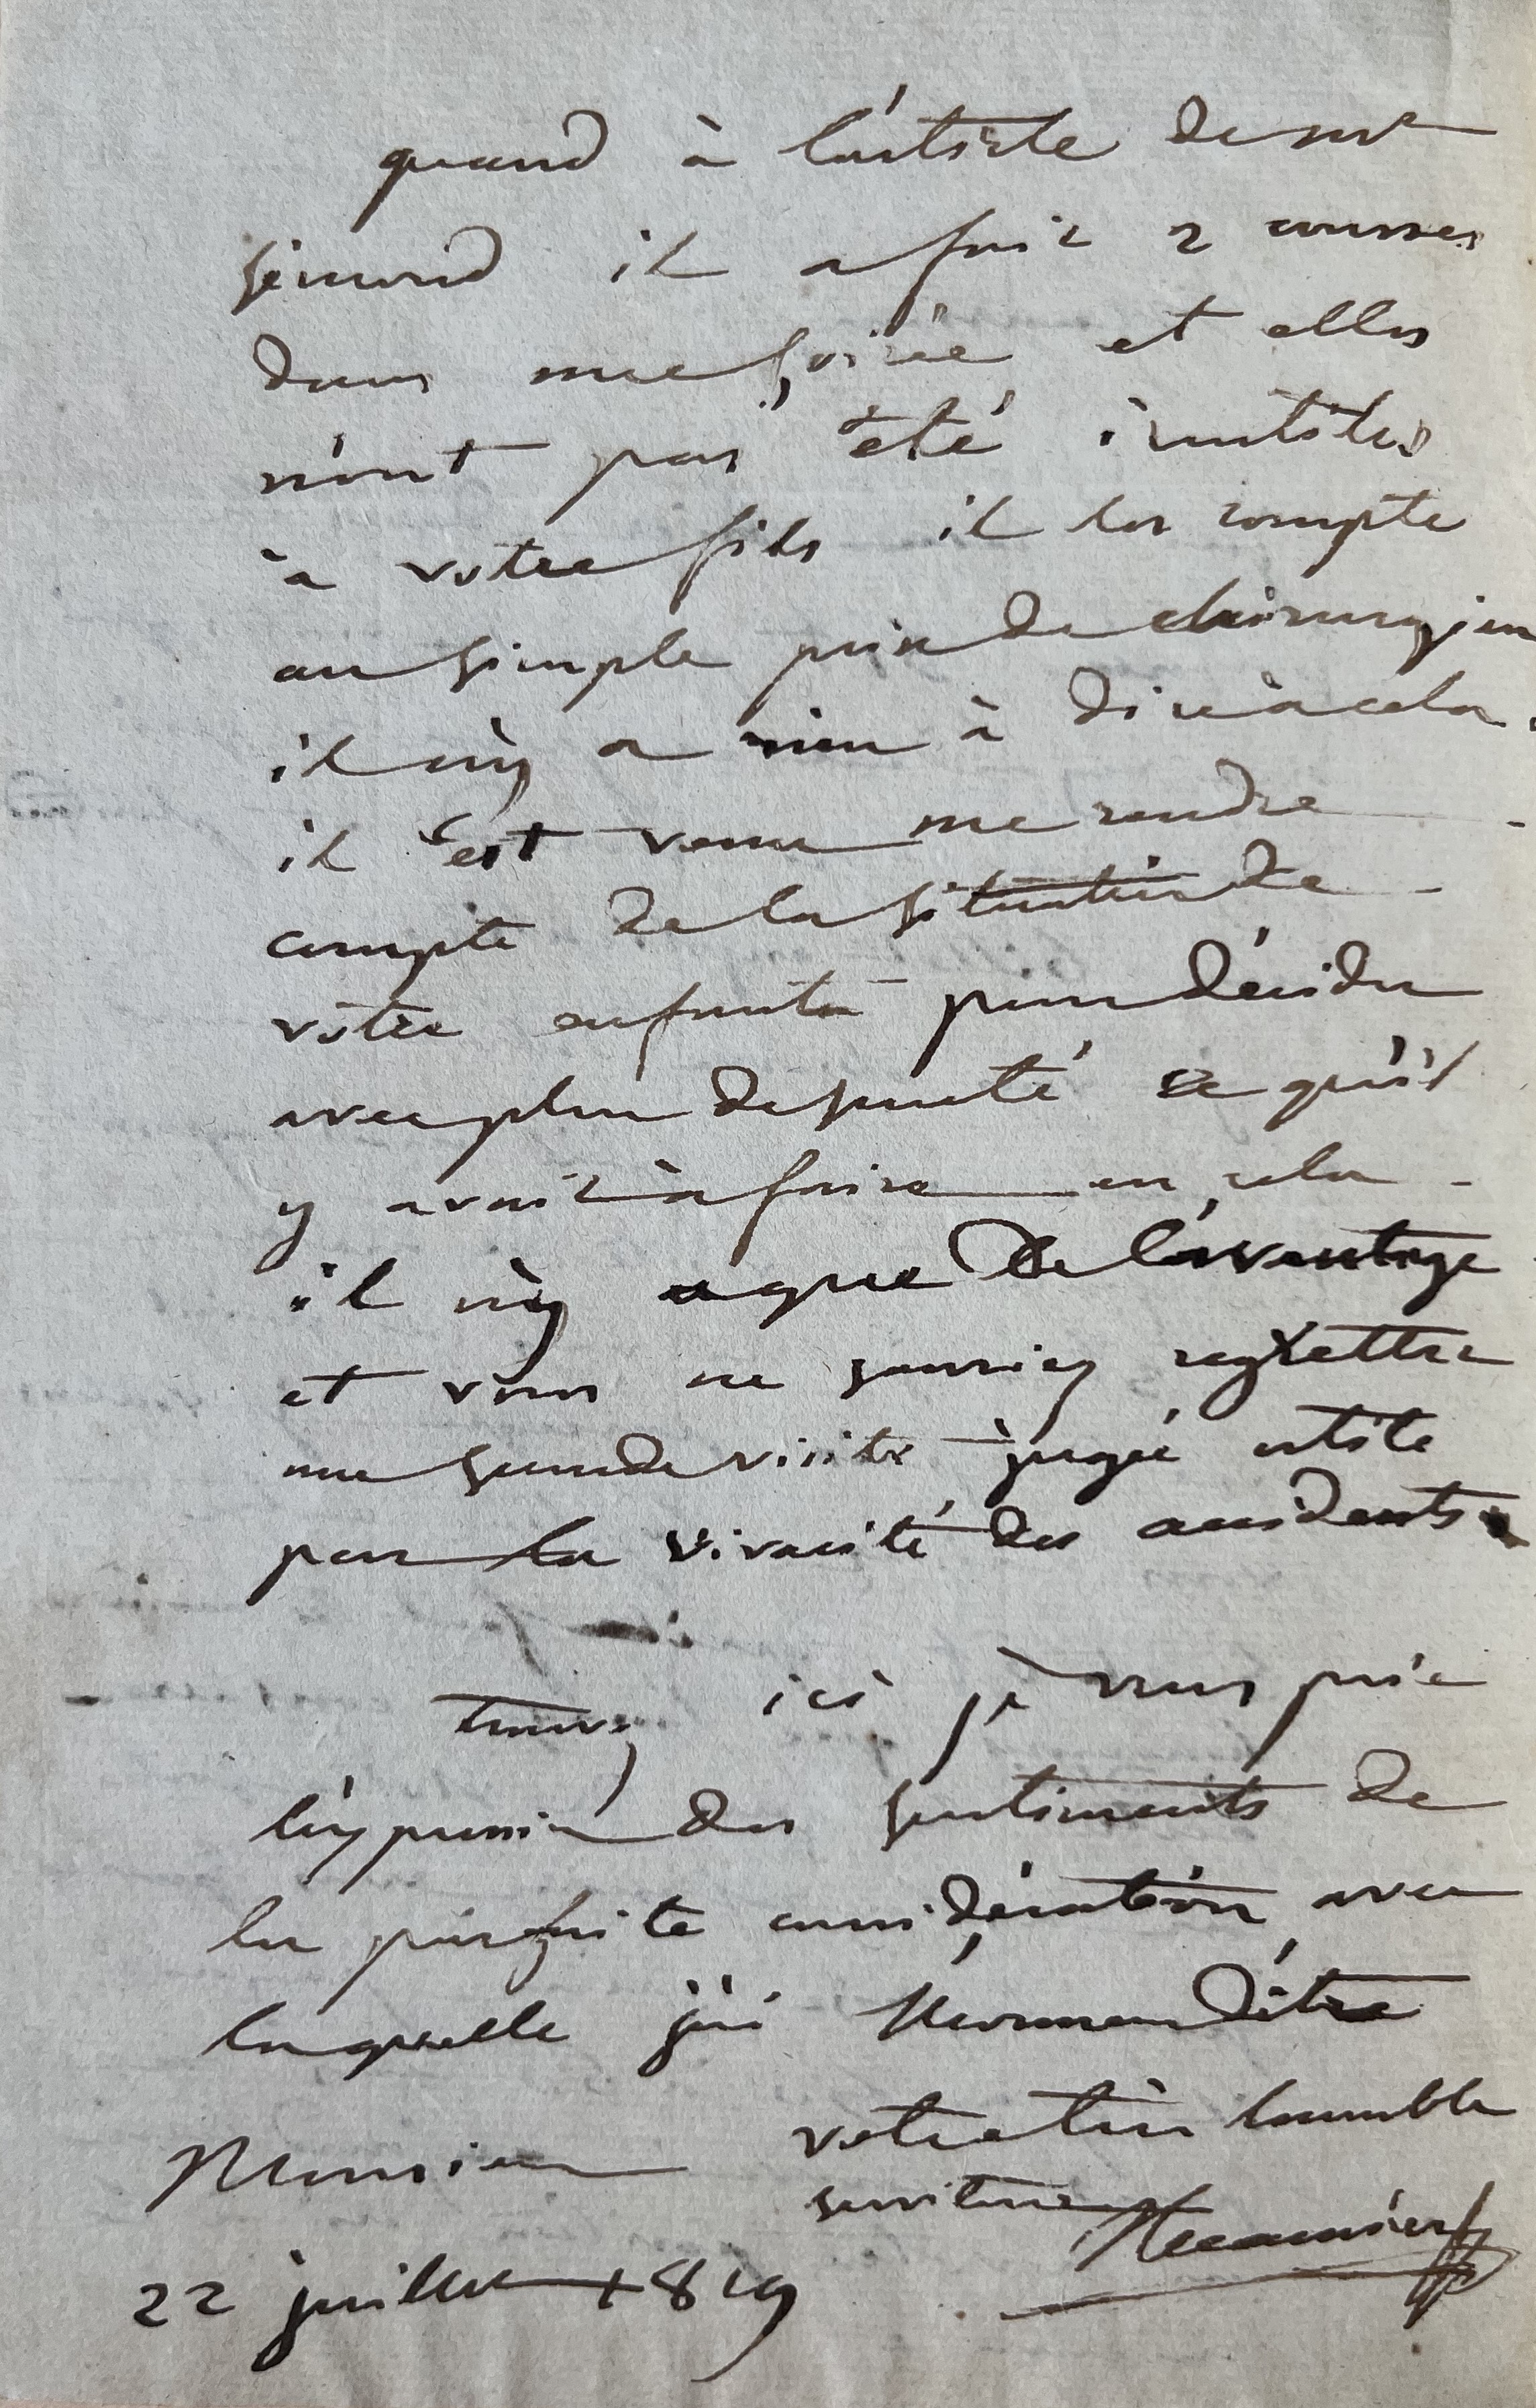 quand à l'artiste de mr
simond il a fait 2 courses
dans une soirée et elles
n'ont pas été inutiles
à votre fils il les compte
au simple prix de chirurgien
il n'y a rien à dire à cela.
il est venu me rendre
compte de la situation de
votre enfant pour décider
avec plus de sureté ce qu'il
y avait à faire en cela
il n'y a que de l'avantage
et vous ne sauriez regretter
une seconde visite jugée utile
par la vivacité des accidents.
trouvez ici je vous prie
l'expression des sentiments de
la parfaite considération avec
laquelle j'ai l'honneur d'être
Monsieur votre très humble
serviteur Recamier
22 juillet 1819